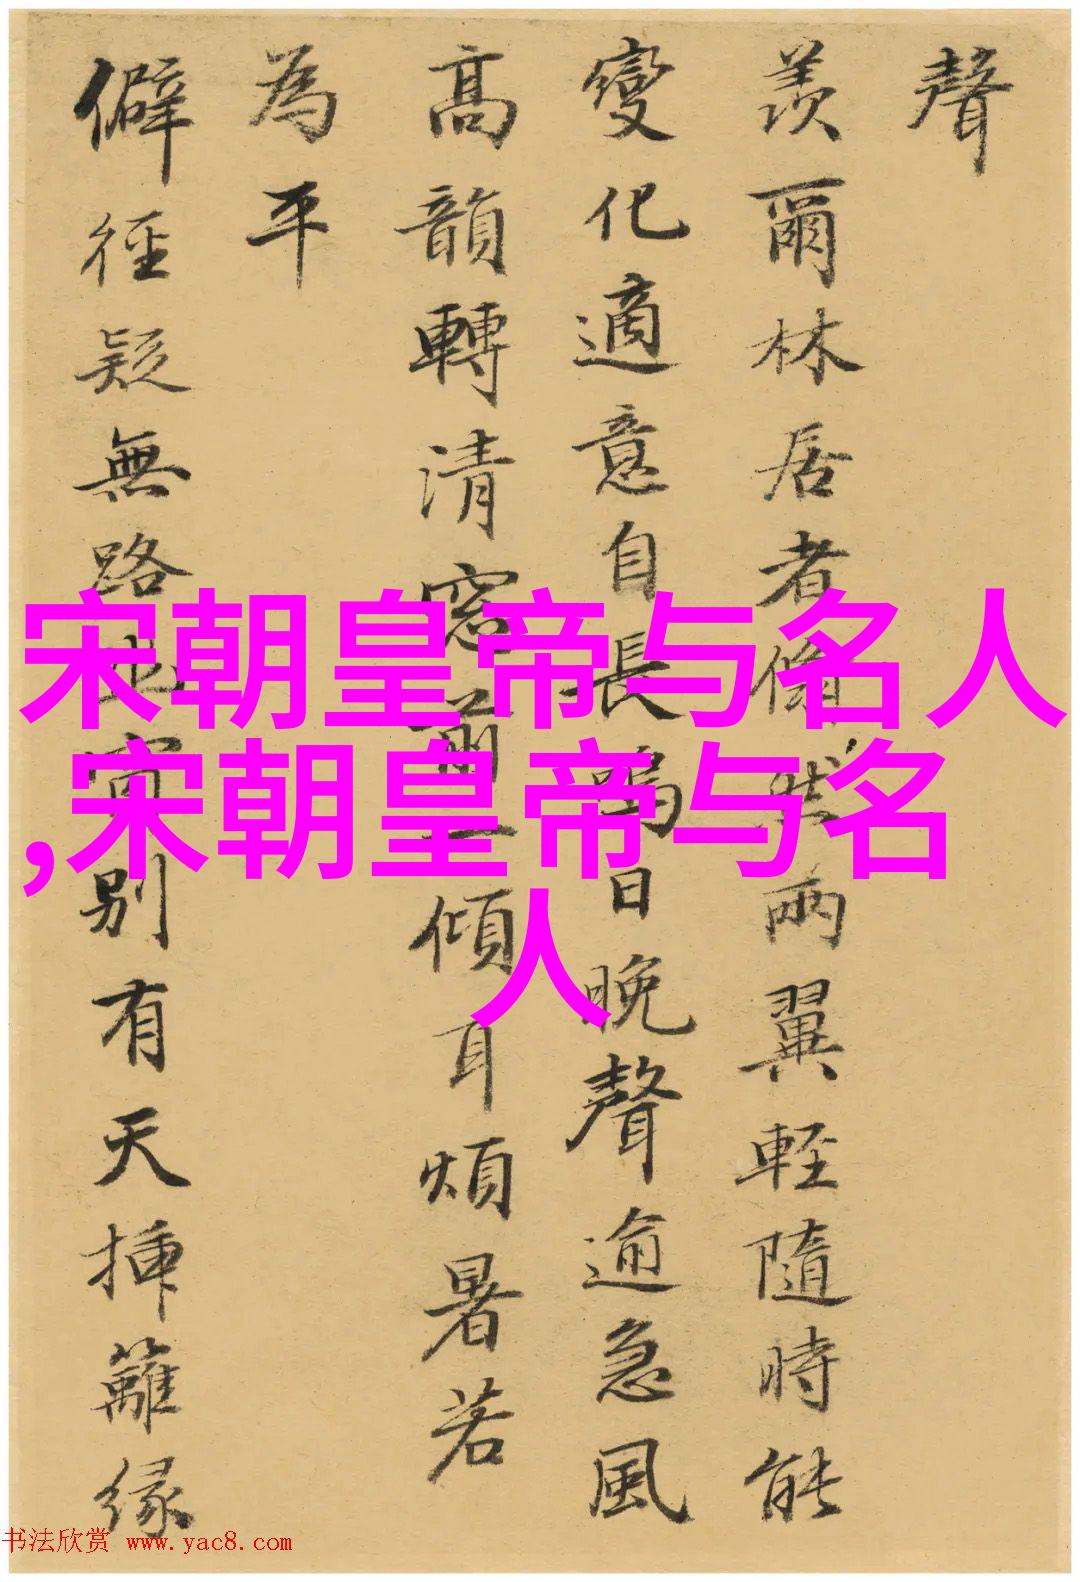 聲
羨爾林居者翛然兩翼輕隨時能
變化適意自長鳴日晚聲逾急風
高韻轉清窓前一傾耳煩暑若
為平
僻徑疑無路別有天插籬緣
宋朝皇帝与名人
,宋朝皇帝与名
人
书法欣赏 www.yac8.com